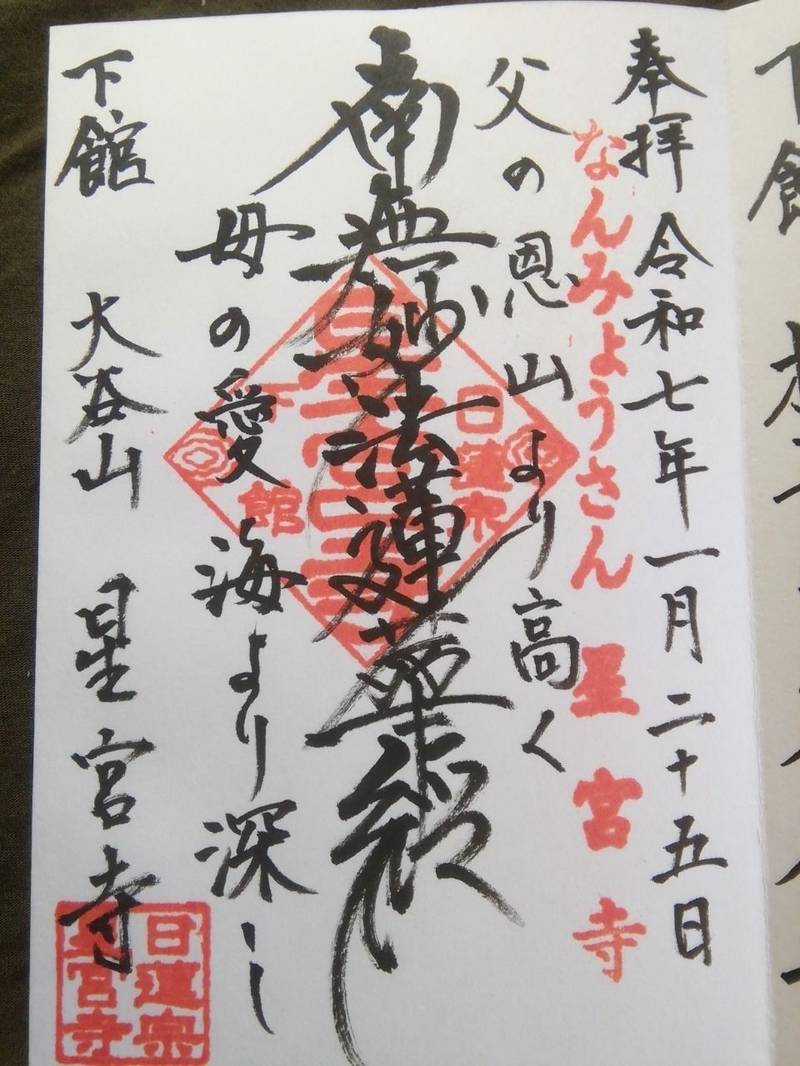 奉拝 令和七年一月二十五日
なんみょうさん 星宮寺
父の恩山より高く
南無妙法蓮華経
母の愛海より深し
下館 大谷山 星宮寺
日蓮宗
星宮寺
日蓮宗
下館